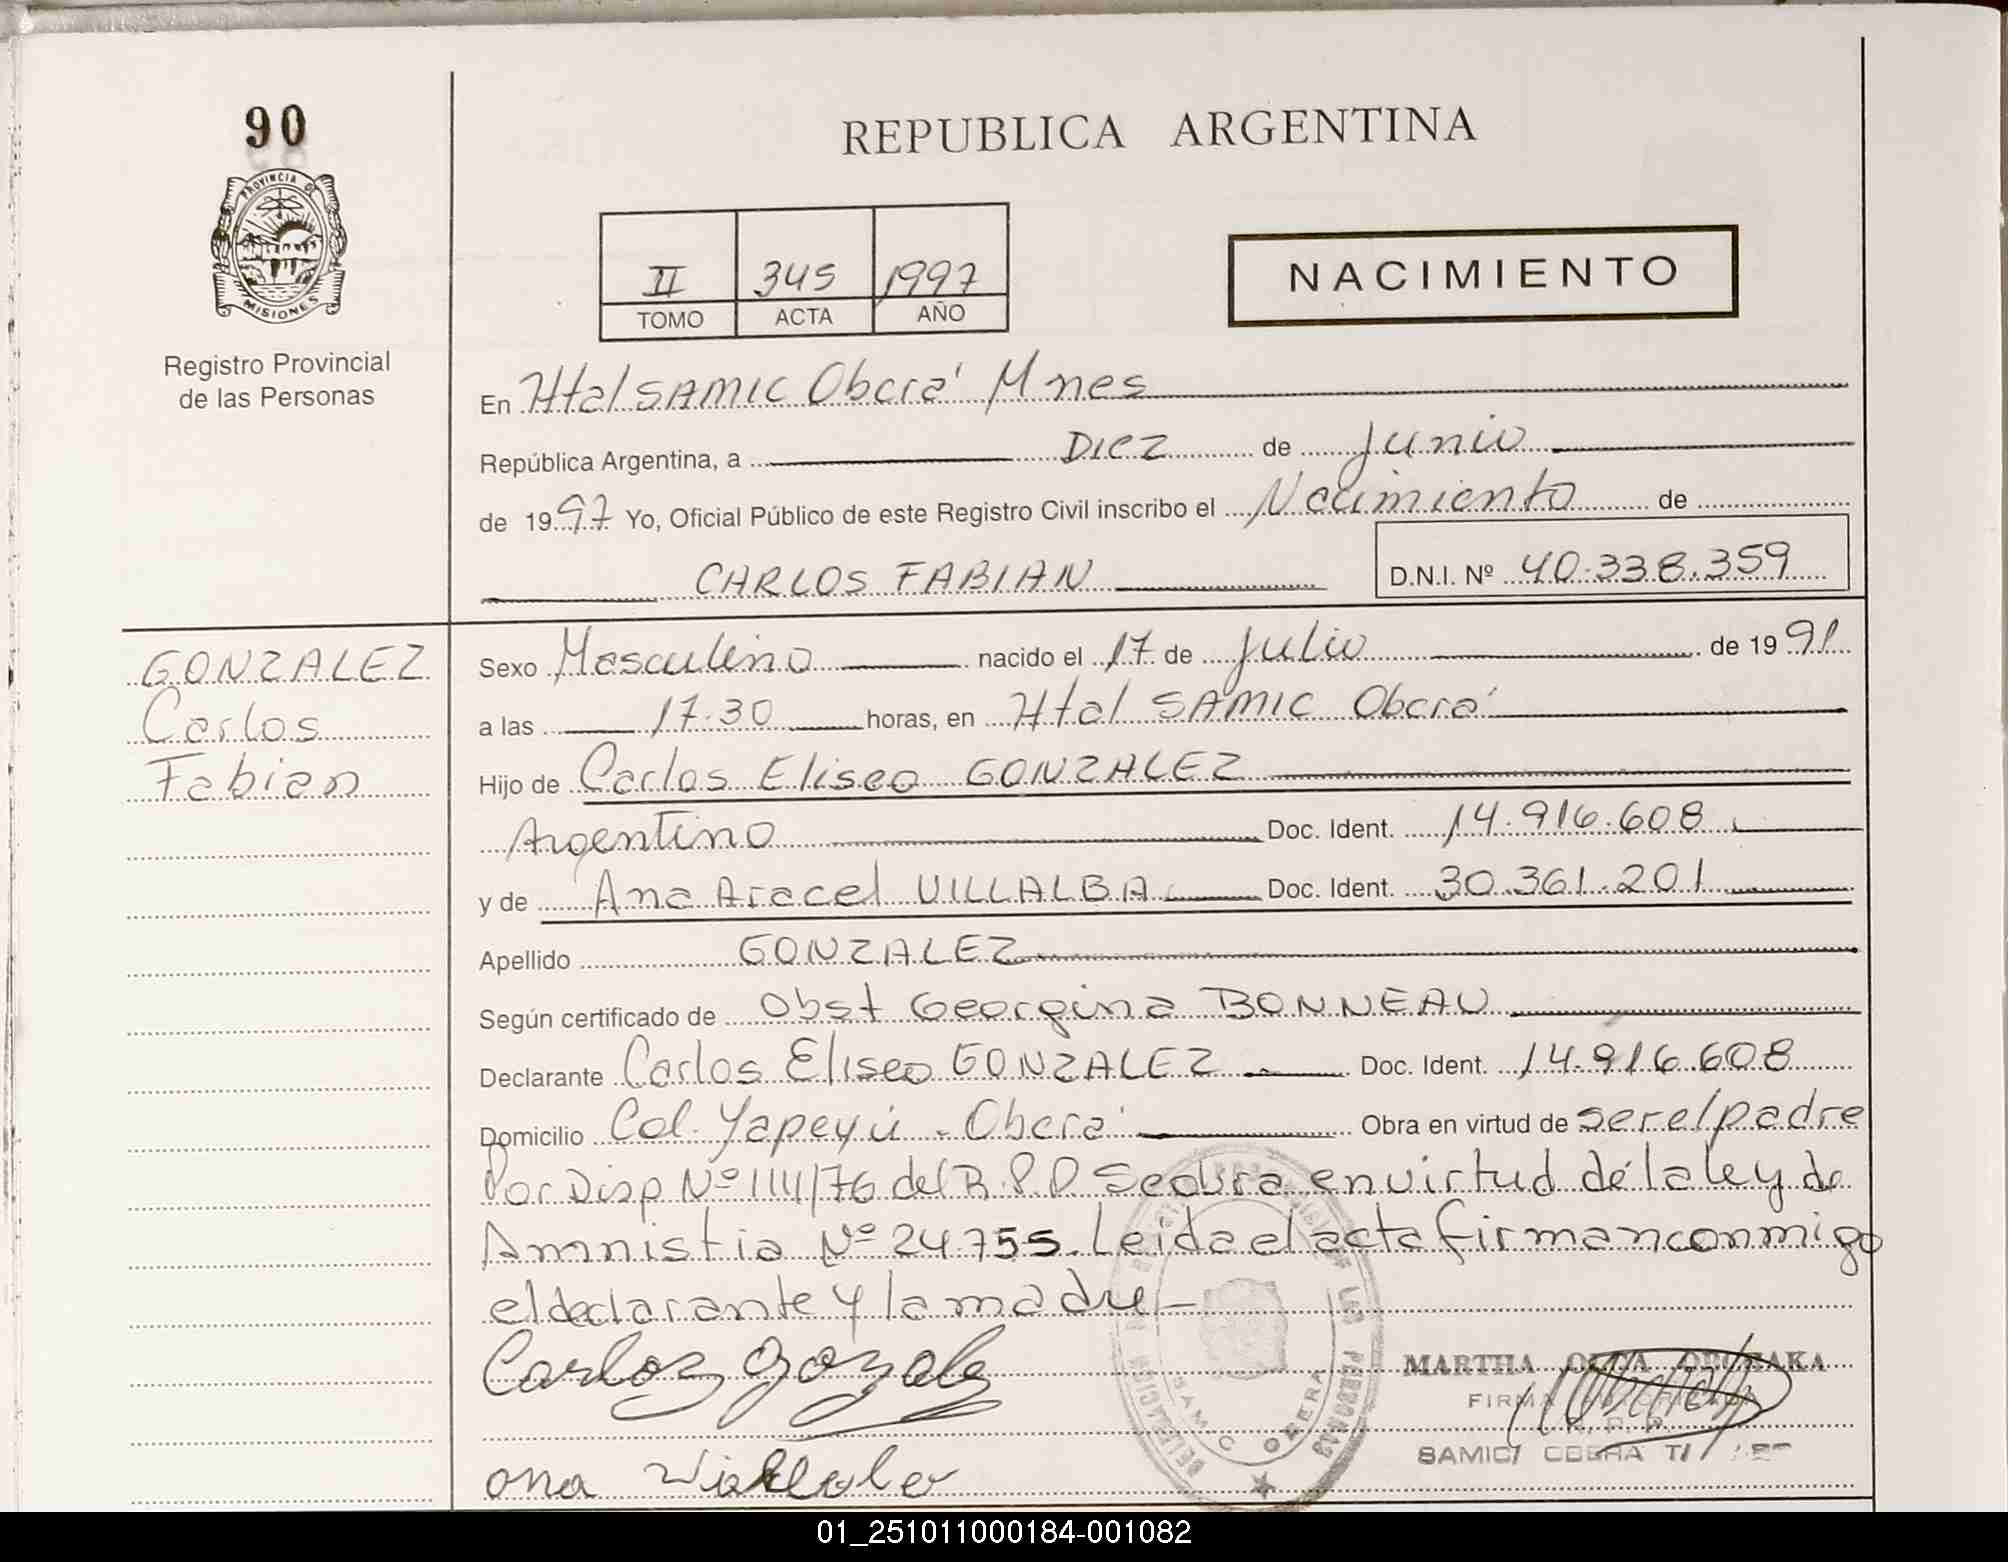 90
PROVINCIA DE
MISIONES
Registro Provincial
de las Personas
REPUBLICA ARGENTINA
II 345 1997
TOMO ACTA AÑO
NACIMIENTO
En Htal SAMIC Oberá Mnes
República Argentina, a DIEZ de Junio
de 1997 Yo, Oficial Público de este Registro Civil inscribo el Nacimiento de
CARLOS FABIAN D.N.I. Nº 40.338.359
GONZALEZ
Carlos
Fabian
Sexo Masculino nacido el 17 de Julio de 1991
a las 17.30 horas, en Htal SAMIC Oberá
Hijo de Carlos Eliseo GONZALEZ
Argentino Doc. Ident. 14.916.608
y de Ana Aracel VILLALBA Doc. Ident. 30.361.201
Apellido GONZALEZ
Según certificado de Obst Georgina BONNEAU
Declarante Carlos Eliseo GONZALEZ Doc. Ident. 14.916.608
Domicilio Col. Yapeyú - Oberá Obra en virtud de ser el padre
Por Disp Nº 114/76 del R.P.P. Se obra en virtud de la ley de
Amnistia Nº 24.755. Leida el acta firman conmigo
el declarante y la madre -
Carlos Gozales
ana Villalba
DELEGACION
DE LAS PERSONAS
SAMIC OBERA
MARTHA
FIRMA
SAMIC OBERA
01_251011000184-001082